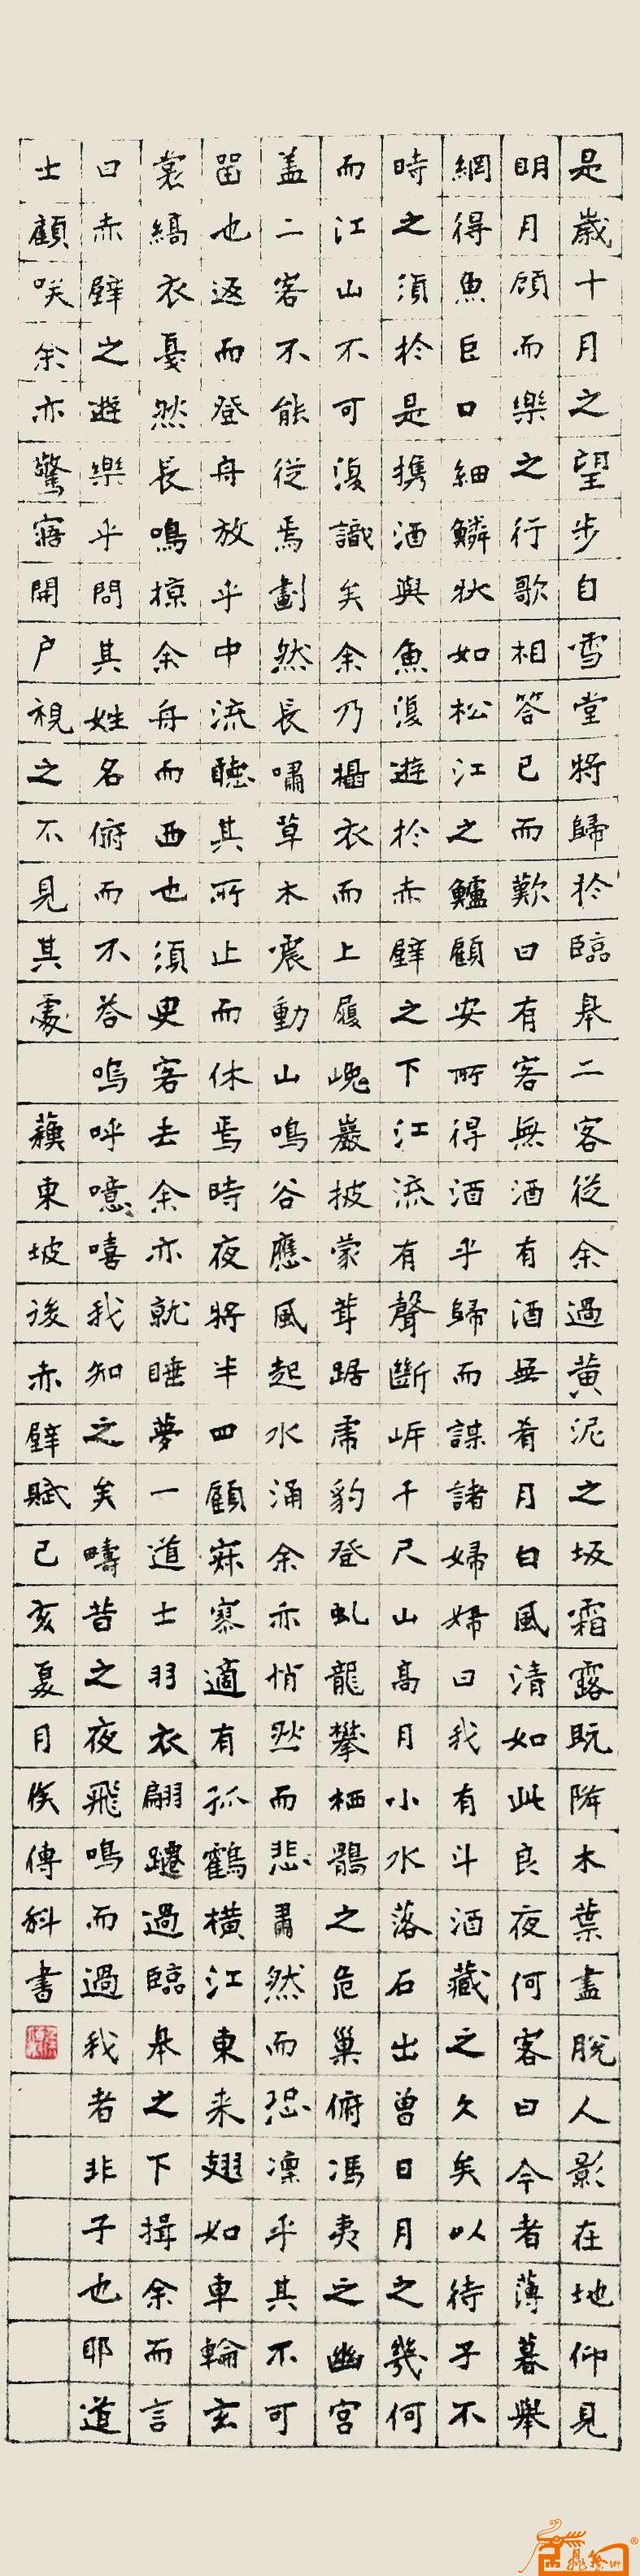 是歲十月之望步自雪堂將歸於臨皋二客從余過黃泥之坂霜露既降木葉盡脫人影在地仰見
明月顧而樂之行歌相答已而歎曰有客無酒有酒無肴月白風清如此良夜何客曰今者薄暮舉
網得魚巨口細鱗狀如松江之鱸顧安所得酒乎歸而謀諸婦婦曰我有斗酒藏之久矣以待子不
時之須於是攜酒與魚復遊於赤壁之下江流有聲斷岸千尺山高月小水落石出曾日月之幾何
而江山不可復識矣余乃攝衣而上履巉巖披蒙茸踞虎豹登虬龍攀栖鶻之危巢俯馮夷之幽宮
盖二客不能從焉劃然長嘯草木震動山鳴谷應風起水涌余亦悄然而悲肅然而恐凜乎其不可
留也返而登舟放乎中流聽其所止而休焉時夜將半四顧寂寥適有孤鶴橫江東來翅如車輪玄
裳縞衣戛然長鳴掠余舟而西也須臾客去余亦就睡夢一道士羽衣翩躚過臨皋之下揖余而言
曰赤壁之遊樂乎問其姓名俯而不答嗚呼噫嘻我知之矣疇昔之夜飛鳴而過我者非子也耶道
士顧笑余亦驚寤開戶視之不見其處 蘇東坡後赤壁賦己亥夏月侯傳科書